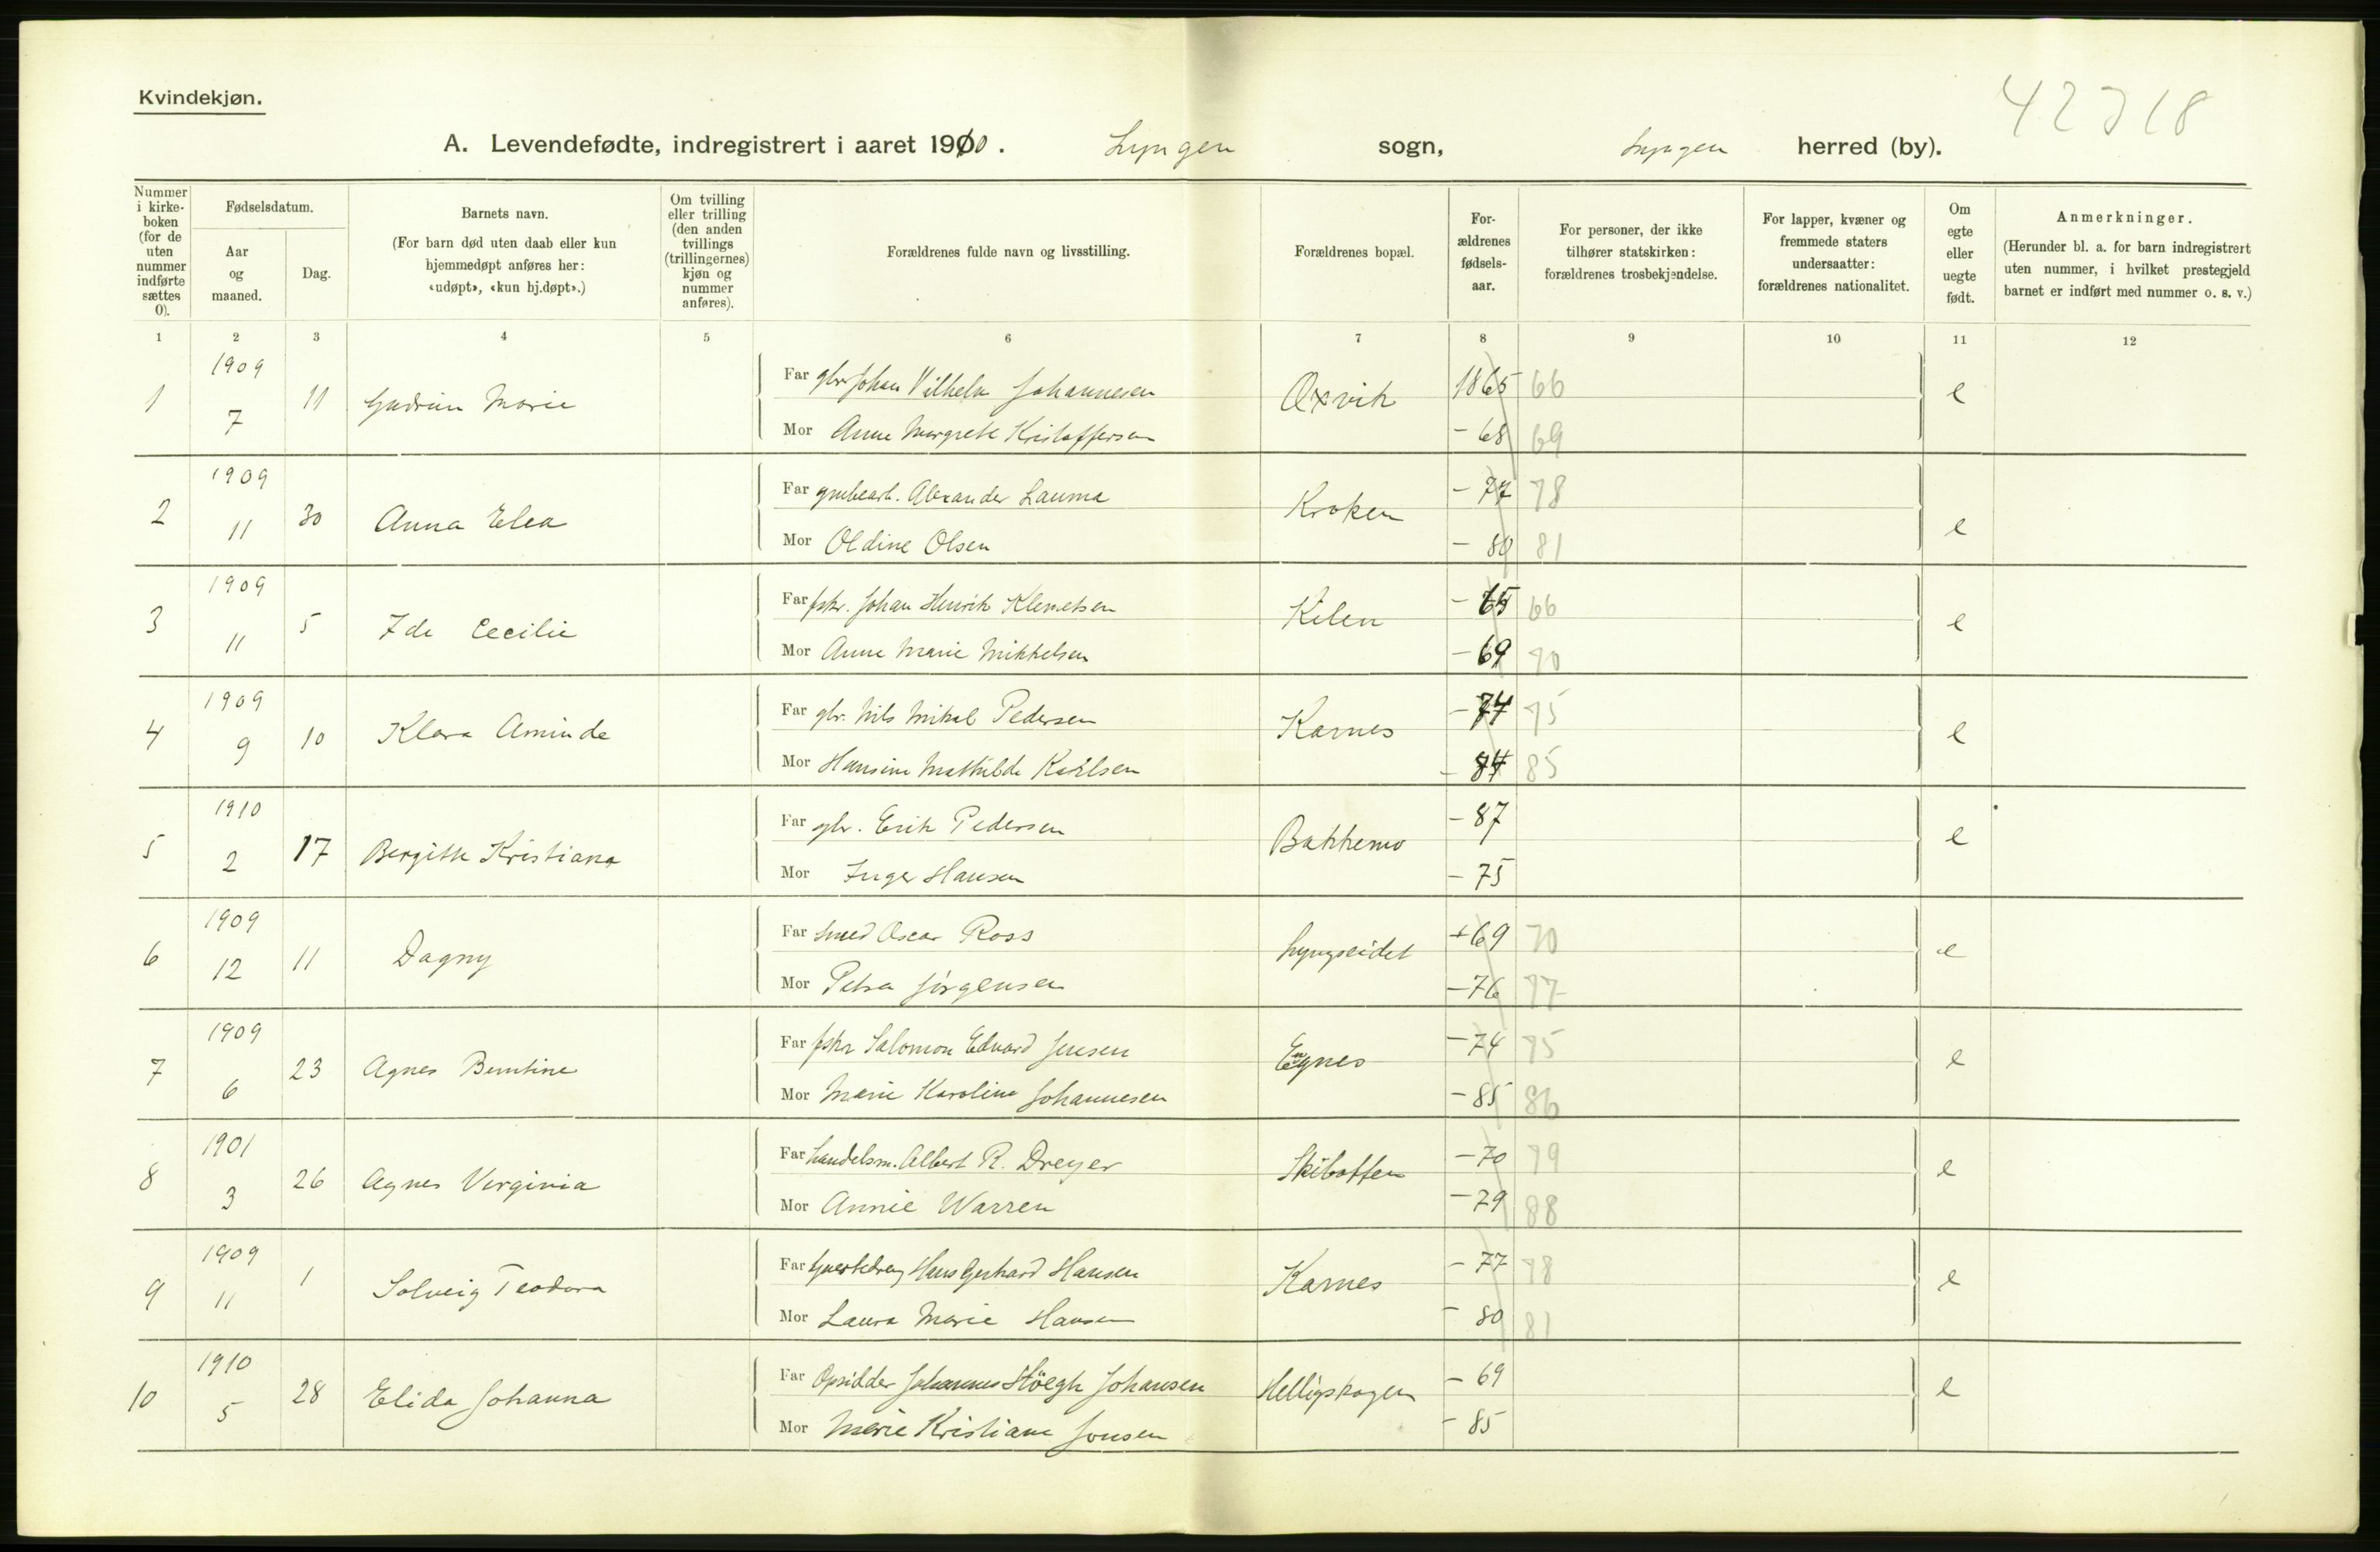 42718
Kvindekjøn.
A. Levendefødte, indregistrert i aaret 1910. Lyngen sogn, Lyngen herred (by).
Nummer i kirkeboken (for de uten nummer indførte sættes 0).
Fødselsdatum.
Aar og maaned.
Dag.
Barnets navn.
(For barn død uten daab eller kun hjemmedøpt anføres her: «udøpt», «kun hj.døpt».)
Om tvilling eller trilling (den anden tvillings (trillingernes) kjøn og nummer anføres).
Forældrenes fulde navn og livsstilling.
Forældrenes bopæl.
Forældrenes fødselsaar.
For personer, der ikke tilhører statskirken: forældrenes trosbekjendelse.
For lapper, kvæner og fremmede staters undersaatter: forældrenes nationalitet.
Om egte eller uegte født.
Anmerkninger.
(Herunder bl. a. for barn indregistrert uten nummer, i hvilket prestegjeld barnet er indført med nummer o. s. v.)
1 2 3 4 5 6 7 8 9 10 11 12
1 1909 7 11 Gudrun Marie Far gbr Johan Vilhelm Johannesen Oxvik 1865 66 e
Mor Anne Margrete Kristoffersen - 68 69
2 1909 11 30 Anna Elea Far grubearb. Alexander Lauma Kroken - 77 78 e
Mor Oldine Olsen - 80 81
3 1909 11 5 Ida Cecilie Far fskr. Johan Henrik Klemetsen Kilen - 65 66 e
Mor Anne Marie Mikkelsen - 69 70
4 1909 9 10 Klara Aminde Far gbr. Nils Mikal Pedersen Karnes - 74 75 e
Mor Hansine Mathilde Karlsen - 84 85
5 1910 2 17 Bergithe Kristiana Far gbr. Erik Pedersen Bakkemo - 87 e
Mor Inger Hansen - 75
6 1909 12 11 Dagny Far smed Oscar Ross Lyngseidet + 69 70 e
Mor Petra Jørgensen - 76 77
7 1909 6 23 Agnes Berntine Far fskr Salomon Edvard Jensen Egnes - 74 75 e
Mor Marie Karoline Johannesen - 85 86
8 1901 3 26 Agnes Virginia Far handelsm. Albert R. Dreyer Skibotten - 70 79 e
Mor Annie Warren - 79 88
9 1909 11 1 Solveig Teodora Far Hans Gerhard Hansen Karnes - 77 78 e
Mor Laura Marie Hansen - 80 81
10 1910 5 28 Elida Johanna Far Opsidder Johannes Höegh Johansen Helligskogen - 69 e
Mor Marie Kristiane Jonsen - 85